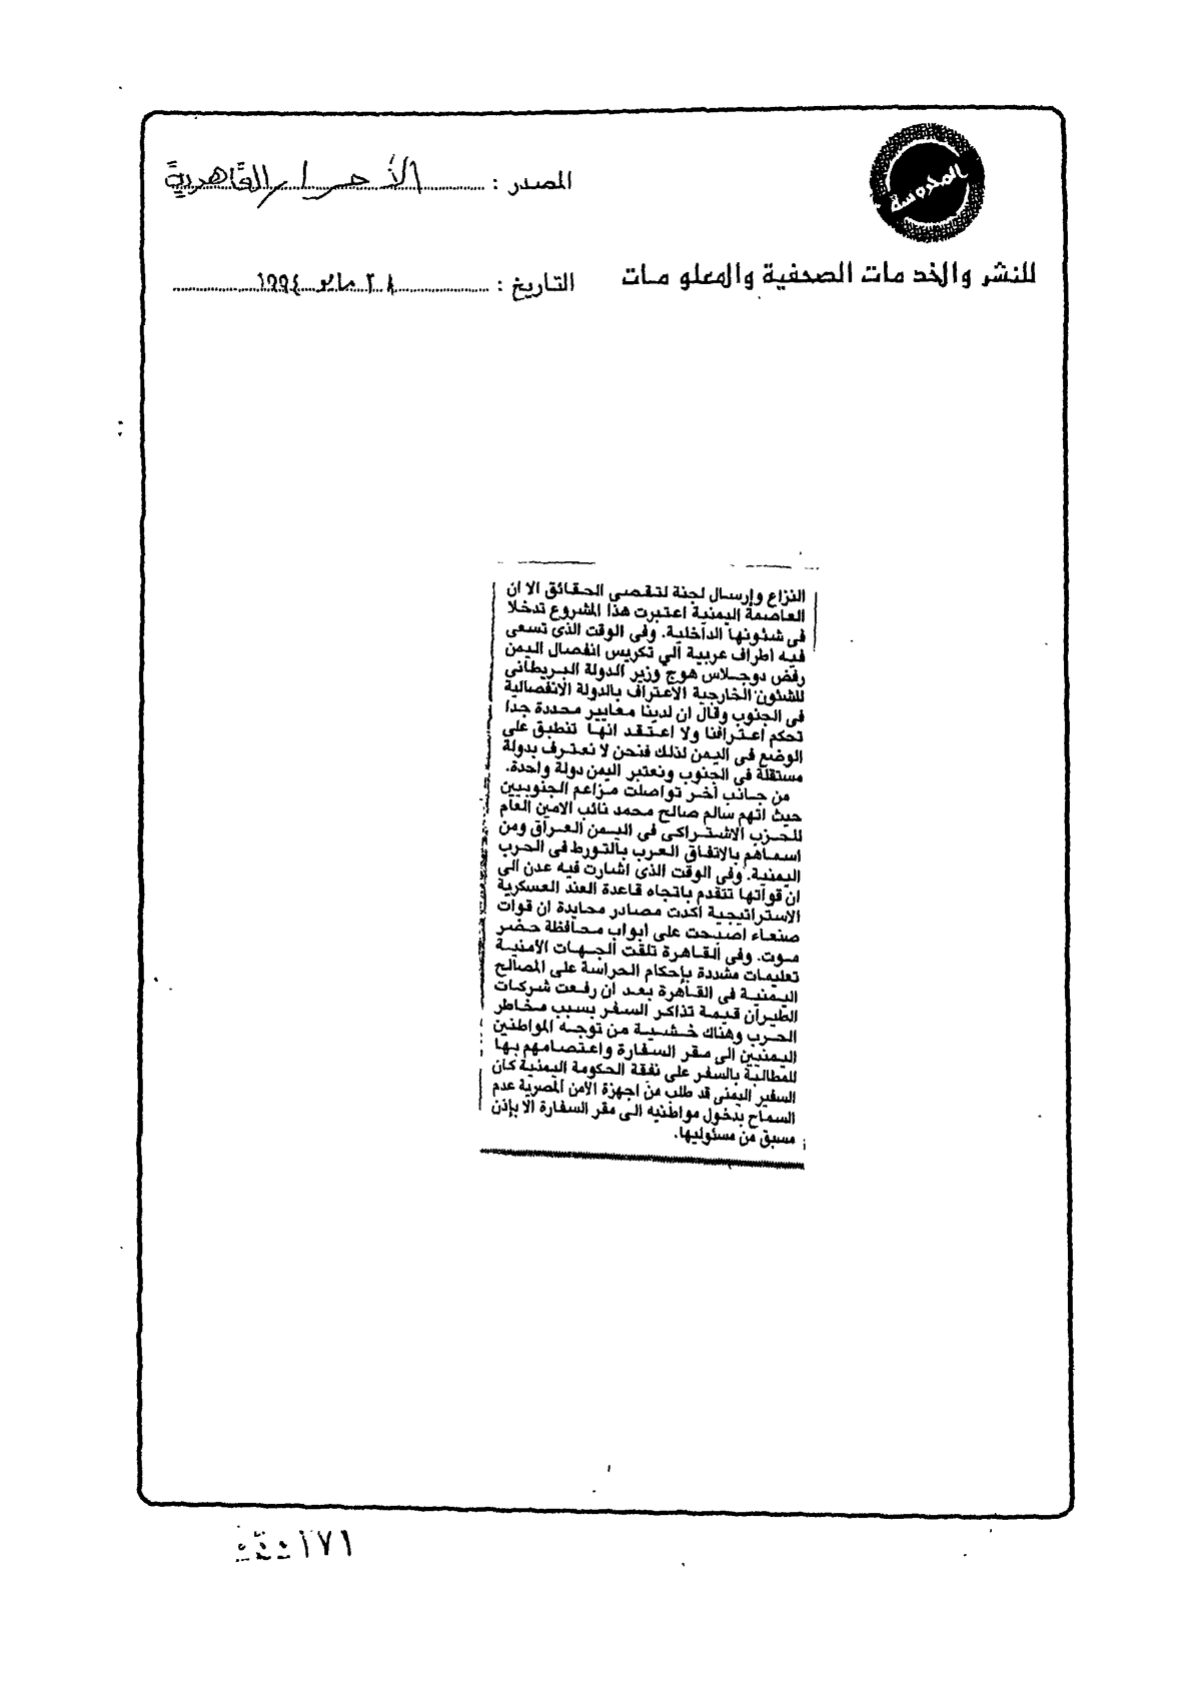 المحروسة
المصدر : الأحرار القاهرية
للنشر والخدمات الصحفية والمعلومات
التاريخ : ٢٨ مايو ١٩٩٤
النزاع وإرسال لجنة لتقصى الحقائق الا ان
العاصمة اليمنية اعتبرت هذا المشروع تدخلا
فى شئونها الداخلية. وفى الوقت الذى تسعى
فيه اطراف عربية الى تكريس انفصال اليمن
رفض دوجلاس هوج وزير الدولة البريطانى
للشئون الخارجية الاعتراف بالدولة الانفصالية
فى الجنوب وقال ان لدينا معايير محددة جدا
تحكم اعترافنا ولا اعتقد انها تنطبق على
الوضع فى اليمن لذلك فنحن لا نعترف بدولة
مستقلة فى الجنوب ونعتبر اليمن دولة واحدة.
من جانب آخر تواصلت مزاعم الجنوبيين
حيث اتهم سالم صالح محمد نائب الامين العام
للحزب الاشتراكى فى اليمن العراق ومن
اسماهم بالاتفاق العرب بالتورط فى الحرب
اليمنية. وفى الوقت الذى اشارت فيه عدن الى
ان قواتها تتقدم باتجاه قاعدة العند العسكرية
الاستراتيجية اكدت مصادر محايدة ان قوات
صنعاء اصبحت على ابواب محافظة حضر
موت. وفى القاهرة تلقت الجهات الأمنية
تعليمات مشددة بإحكام الحراسة على المصالح
اليمنية فى القاهرة بعد ان رفعت شركات
الطيران قيمة تذاكر السفر بسبب مخاطر
الحرب وهناك خشية من توجه المواطنين
اليمنيين الى مقر السفارة واعتصامهم بها
للمطالبة بالسفر على نفقة الحكومة اليمنية كان
السفير اليمنى قد طلب من اجهزة الامن المصرية عدم
السماح بدخول مواطنيه الى مقر السفارة الا بإذن
مسبق من مسئوليها.
١٧١